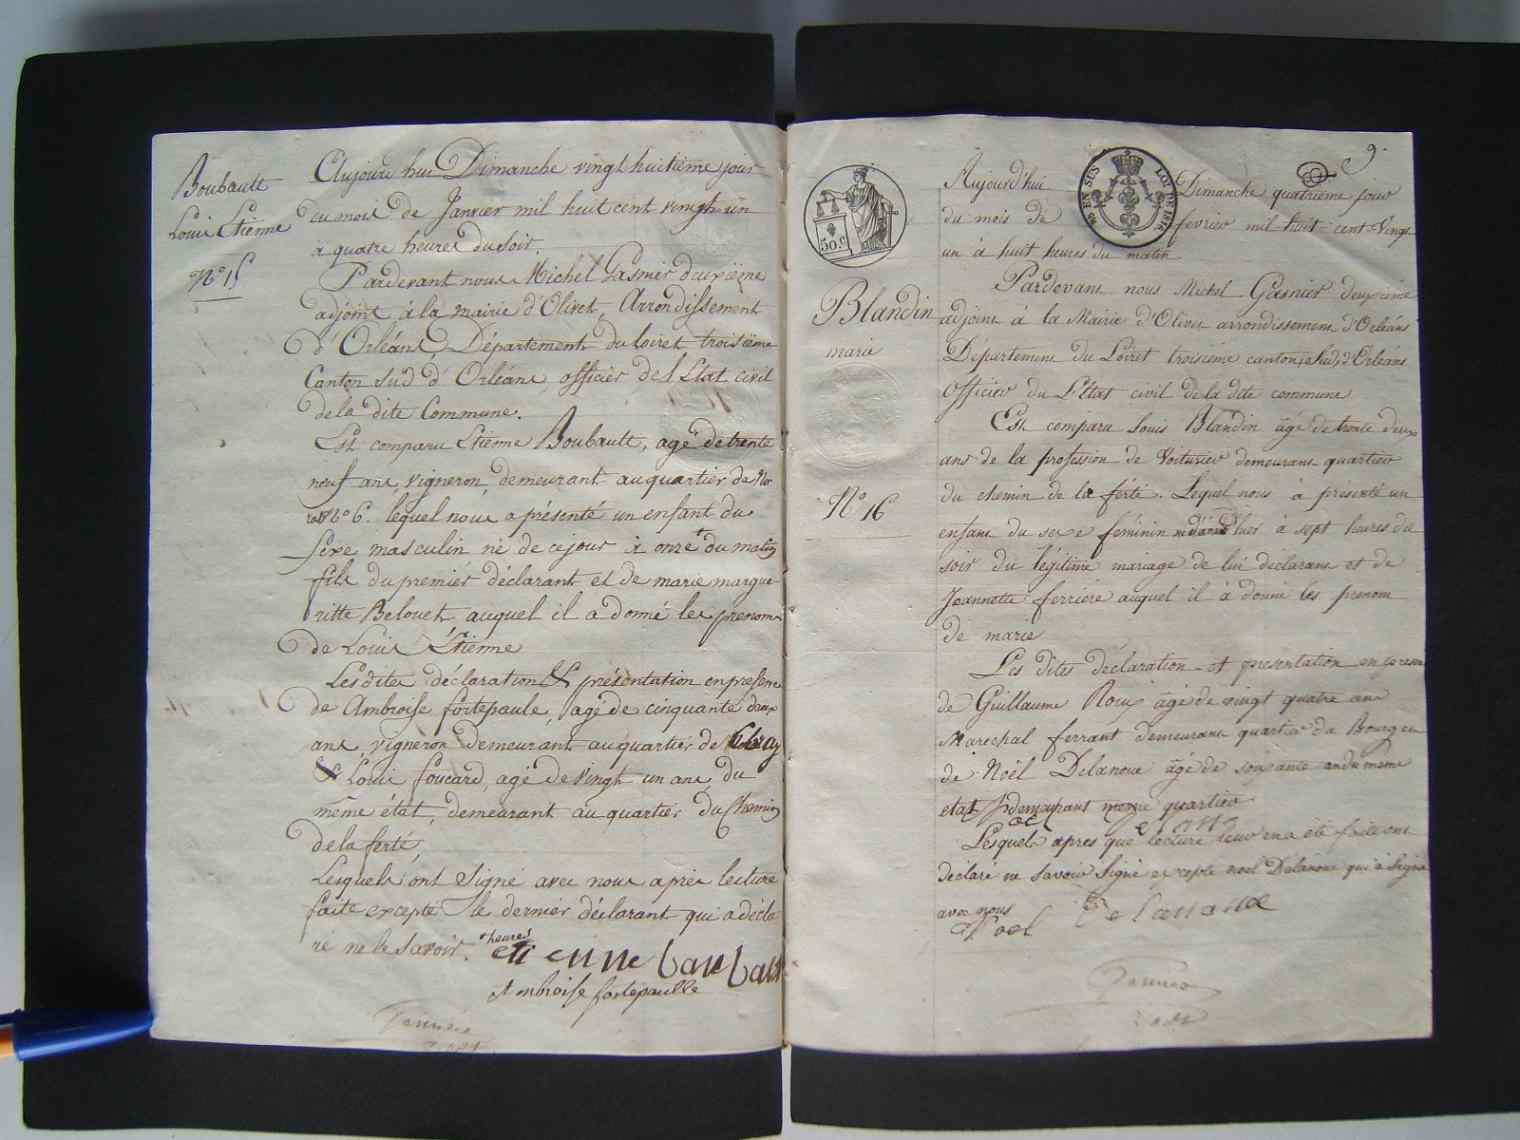 Boubault
Louis Etienne
N° 15
Aujourd'hui Dimanche vingt huitième jour
du mois de Janvier mil huit cent vingt un
à quatre heures du soir.
Pardevant nous Michel Gasnier deuxième
adjoint à la mairie d'Olivet, Arrondissement
d'Orléans, Département du Loiret troisième
Canton sud d'Orléans officier de l'Etat civil
de la dite Commune.
Est comparu Etienne Boubault, agé de trente
neuf ans, vigneron, demeurant au quartier de
N° 6. lequel nous a présenté un enfant du
sexe masculin né de ce jour à onze + du matin
fils du premier déclarant et de marie margue
ritte Belouet auquel il a donné les prenoms
de Louis Étienne
Les dites déclaration & présentation en presence
de Ambroise fortepaule, agé de cinquante deux
ans, vigneron demeurant au quartier de
& Louis foucard, agé de vingt un ans, du
même état, demeurant au quartier du Chemin
de la ferté
Lesquels ont signé avec nous après lecture
faite excepté le dernier déclarant qui a décla
ré ne le savoir. + heures
etienne baubault
Ambroise fortepaulle
Gasnier
adjt
9.
EN SUS LOI DE 1816
50 c
Blandin
marie
N° 16
Aujourd'hui Dimanche quatrième jour
du mois de fevrier mil huit cent vingt
un à huit heures du matin
Pardevant nous Michel Gasnier deuxième
adjoint à la Mairie d'Olivet arrondissement d'Orléans
Département du Loiret troisième canton sud d'Orléans
Officier de L'Etat civil de la dite commune
Est comparu Louis Blandin âgé de trente deux
ans de la profession de Voiturier demeurant quartier
du chemin de la ferté. Lequel nous à presenté un
enfant du sexe féminin hier à sept heures du
soir du légitime mariage de lui déclarant et de
Jeannette ferriere auquel il à donné les prenom
de marie
Les dites déclaration et presentation en presence
de Guillaume âgé de vingt quatre ans
Marechal ferrant demeurant quartier du Bourg et
de Noël Delanoue âgé de soixante ans du meme
etat demeurant meme quartier
Lesquels apres que lecture leur en a été faite ont
déclaré ne savoir signé excepté noel Delanoue qui à signé
avec nous
Noel Delanoue
Gasnier
adjt